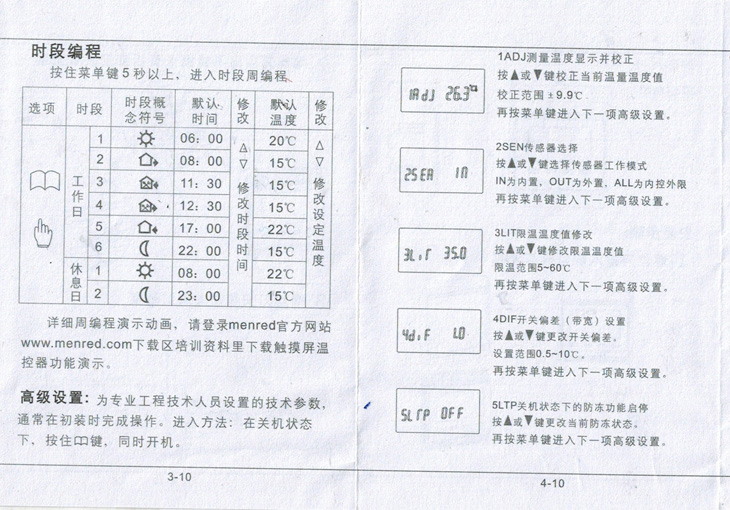 时段编程
按住菜单键5秒以上，进入时段周编程。
选项 时段 时段概念符号 默认时间 修改 默认温度 修改
工作日 1 06：00 20℃
2 08：00 15℃
3 11：30 15℃
4 12：30 15℃
5 17：00 22℃
6 22：00 15℃
休息日 1 08：00 22℃
2 23：00 15℃
△▽修改时段时间
△▽修改设定温度
详细周编程演示动画，请登录menred官方网站
www.menred.com下载区培训资料里下载触摸屏温
控器功能演示。
高级设置：为专业工程技术人员设置的技术参数，
通常在初装时完成操作。进入方法：在关机状态
下，按住键，同时开机。
3-10
1ADJ测量温度显示并校正
1AdJ 26.3
按▲或▼键校正当前温量温度值
校正范围±9.9℃
再按菜单键进入下一项高级设置。
2SEN传感器选择
2SEN IN
按▲或▼键选择传感器工作模式
IN为内置，OUT为外置，ALL为内控外限
再按菜单键进入下一项高级设置。
3LIT限温温度值修改
3LiT 35.0
按▲或▼键修改限温温度值
限温范围5~60℃
再按菜单键进入下一项高级设置。
4DIF开关偏差（带宽）设置
4diF 1.0
按▲或▼键更改开关偏差。
设置范围0.5~10℃。
再按菜单键进入下一项高级设置。
5LTP关机状态下的防冻功能启停
5LTP OFF
按▲或▼键更改当前防冻状态。
再按菜单键进入下一项高级设置。
4-10